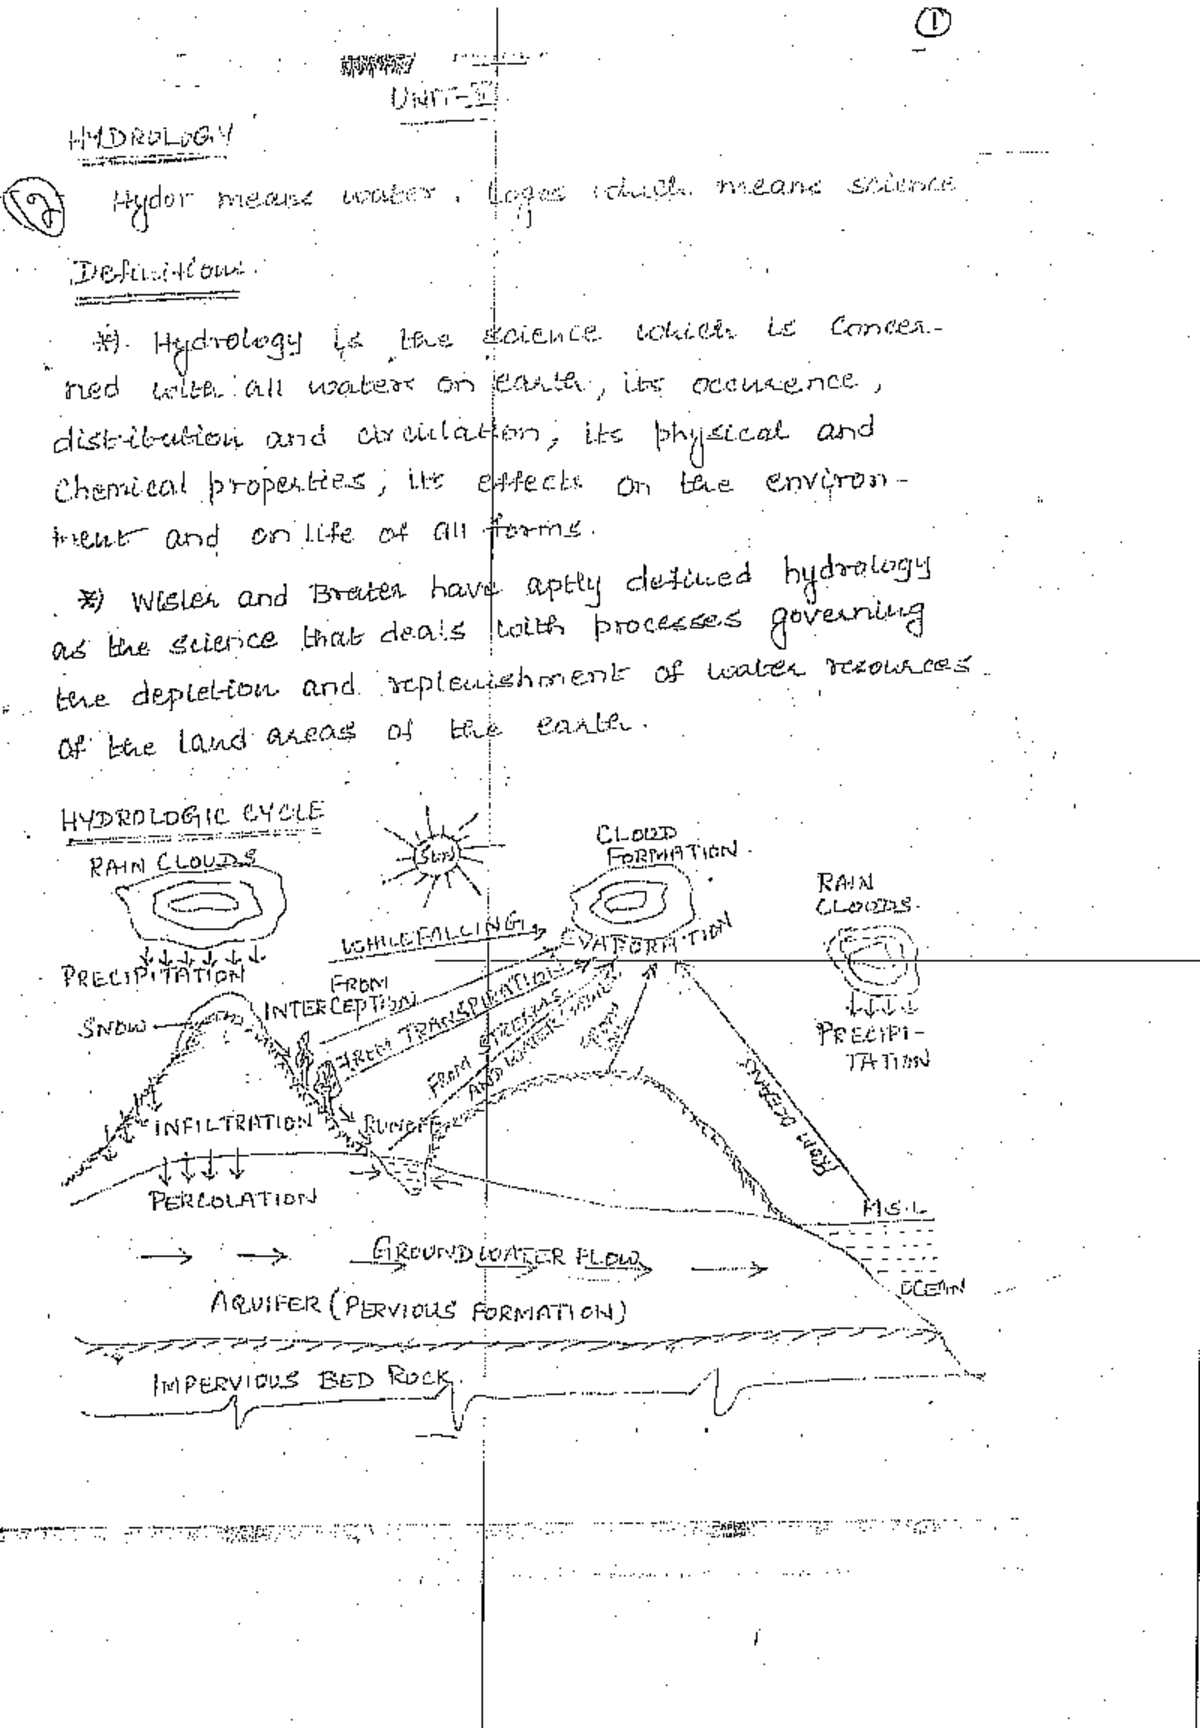 1
UNIT-I
HYDROLOGY
2
Hydor means water. Loges which means science
Definition.
*) Hydrology is the science which is concer-
ned with all waters on earth, its occurence,
distribution and circulation; its physical and
chemical properties; its effects on the environ-
ment and on life of all forms.
*) Wisler and Brater have aptly defined hydrology
as the science that deals with processes governing
the depletion and replenishment of water resources
of the land areas of the earth.
HYDROLOGIC CYCLE
RAIN CLOUDS
SUN
CLOUD
FORMATION.
RAIN
CLOUDS.
WHILE FALLING
EVAPORATION
PRECIPITATION
FROM
INTERCEPTION
SNOW
FROM TRANSPIRATION
FROM STREAMS
AND WATER
PRECIPI-
TATION
FROM OCEANS
INFILTRATION
RUNOFF
PERCOLATION
M.S.L
GROUND WATER FLOW
OCEAN
AQUIFER (PERVIOUS FORMATION)
IMPERVIOUS BED ROCK.